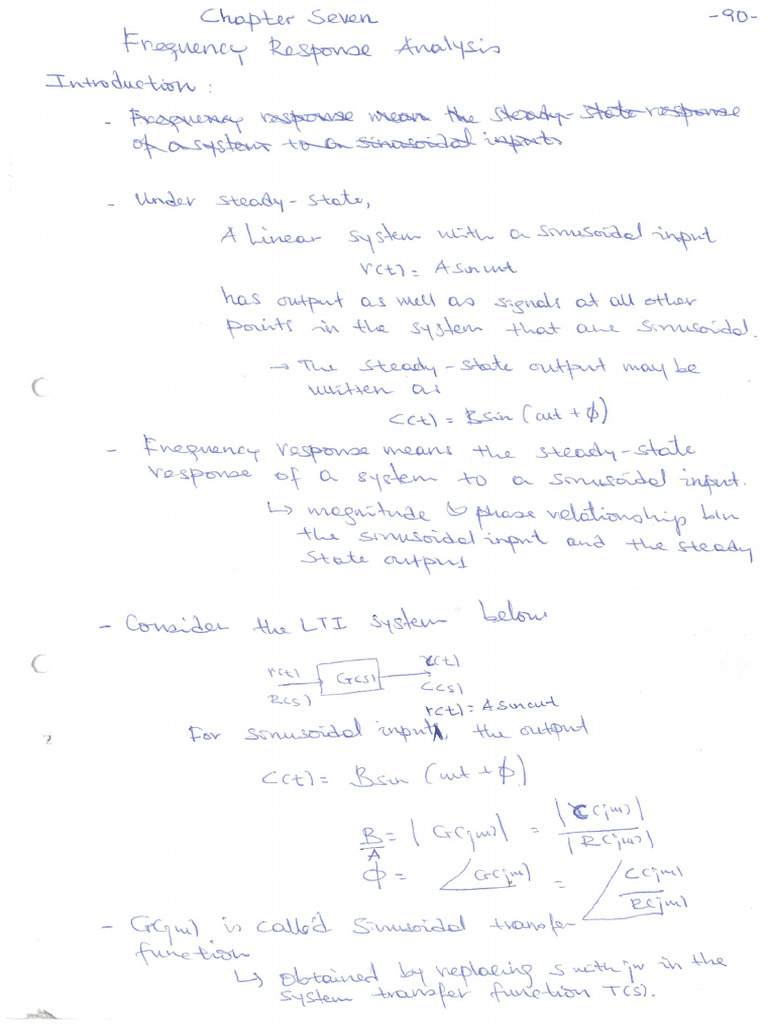 Chapter Seven
-90-
Frequency Response Analysis
Introduction :
- Frequency response mean the steady-state response
of a system to a sinusoidal inputs
- Under steady-state,
A Linear system with a sinusoidal input
r(t) = A sin ωt
has output as well as signals at all other
points in the system that are sinusoidal.
→ The steady-state output may be
written as
c(t) = B sin (ωt + φ)
- Frequency response means the steady-state
response of a system to a sinusoidal input.
↳ magnitude & phase relationship b/n
the sinusoidal input and the steady
state output
- Consider the LTI system below
r(t) G(s) c(t)
R(s) C(s)
r(t) = A sin ωt
For sinusoidal input, the output
c(t) = B sin (ωt + φ)
B/A = |G(jω)| = |C(jω)| / |R(jω)|
φ = ∠G(jω) = ∠C(jω)/R(jω)
- G(jω) is called sinusoidal transfer
function
↳ obtained by replacing s with jω in the
system transfer function T(s).